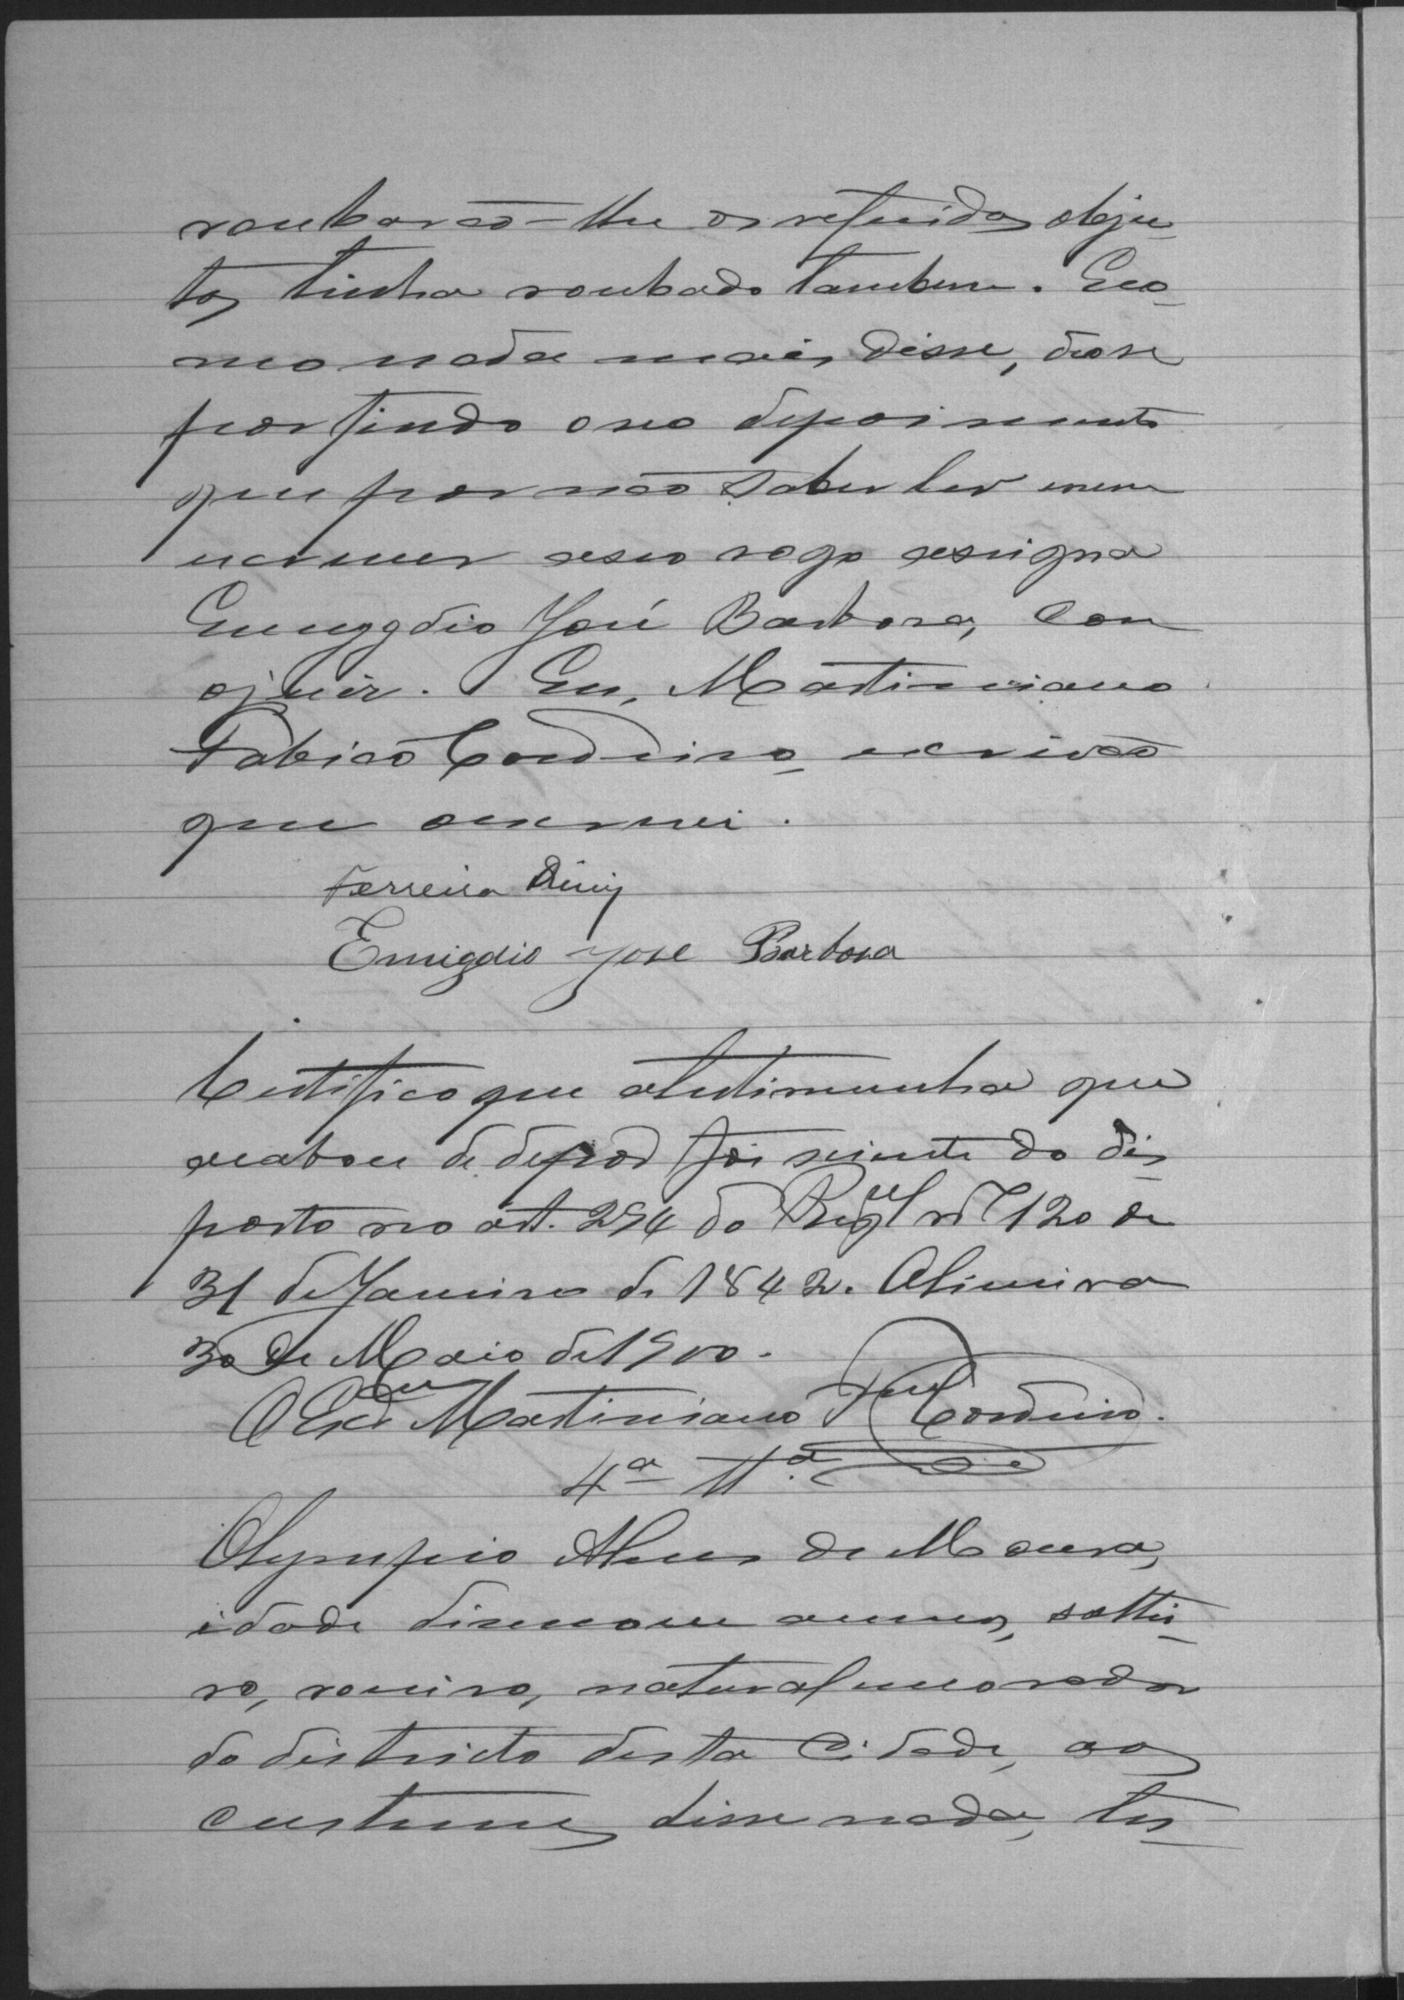 roubarão-lhe os referidos obje-
tos tinha roubado tambem. E co-
mo nada mais disse, deo se
por findo o seo depoimento
que por não saber ler e nem
escrever a seo rogo assigna
Emygdio José Barbosa, com
o juiz. Eu, Martiniano
Fabião Cordeiro, escrivão
que escrevi.
Ferreira Diniz
Emigdio José Barbosa
Certifico que a testimunha que
acabou de depor foi sciente do dis-
posto no art. 294 do Regul nº 120 de
31 de Janeiro de 1842. Alimira
30 de Maio de 1900.
O Escrm Martiniano F Cordeiro.
4ª Tª
Olympio Alves de Moura,
idade disenove annos, soltei-
ro, roceiro, natural e morador
do districto desta Cidade, aos
custumes disse nada, tes-